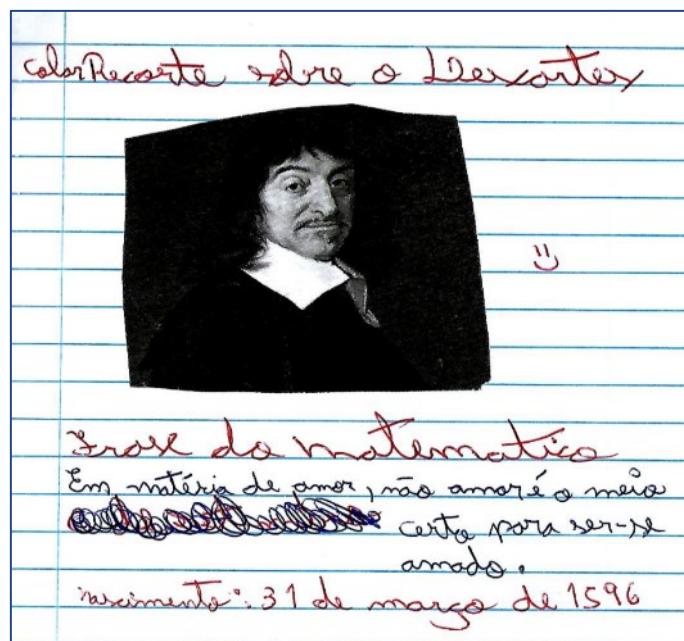 colar Recorte sobre o Descartes
Frase do matematico
Em mtéria de amor, não amar é o meio
certo para ser-se
amado.
nascimento: 31 de março de 1596